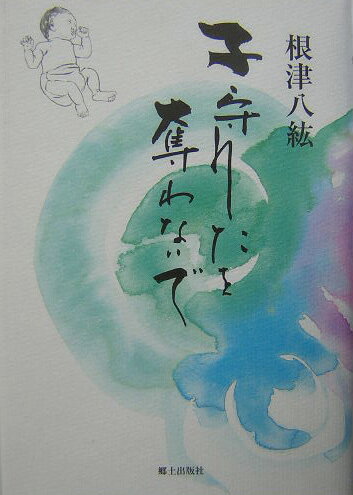 根津八紘
子守りうたを
奪わないで
郷土出版社